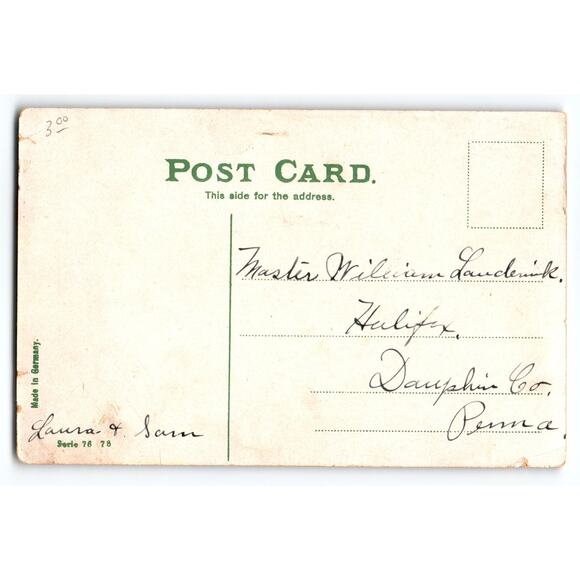 3.00
POST CARD.
This side for the address.
Master William Lauderick.
Halifax,
Dauphin Co,
Penna.
Made in Germany.
Laura & Sam
Serie 76 78